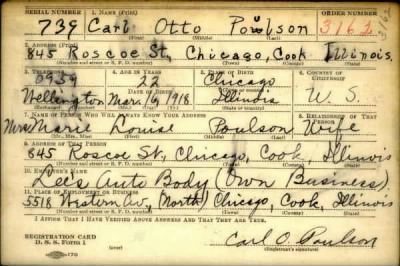 SERIAL NUMBER 1. NAME (Print) ORDER NUMBER
739 Carl Otto Poulson 3162
2. ADDRESS (Print)
845 Roscoe St, Chicago, Cook Illinois.
(Number and street or R. F. D. number) (Town) (County) (State)
3. TELEPHONE 4. AGE IN YEARS 5. PLACE OF BIRTH 6. COUNTRY OF CITIZENSHIP
0959 22 Chicago
DATE OF BIRTH
Wellington Mar. 16, 1918 Illinois U. S.
7. NAME OF PERSON WHO WILL ALWAYS KNOW YOUR ADDRESS 8. RELATIONSHIP OF THAT PERSON
Mrs Marie Louise Poulson Wife
9. ADDRESS OF THAT PERSON
845 Roscoe St, Chicago, Cook, Illinois
(Number and street or R. F. D. number) (Town) (County) (State)
10. EMPLOYER'S NAME
Lee's Auto Body (Own Business)
11. PLACE OF EMPLOYMENT OR BUSINESS
5518 Western Av, (North) Chicago, Cook, Illinois
(Number and street or R. F. D. number) (Town) (County) (State)
I AFFIRM THAT I HAVE VERIFIED ABOVE ANSWERS AND THAT THEY ARE TRUE.
REGISTRATION CARD
D. S. S. Form 1
Carl O. Poulson
(Registrant's signature)